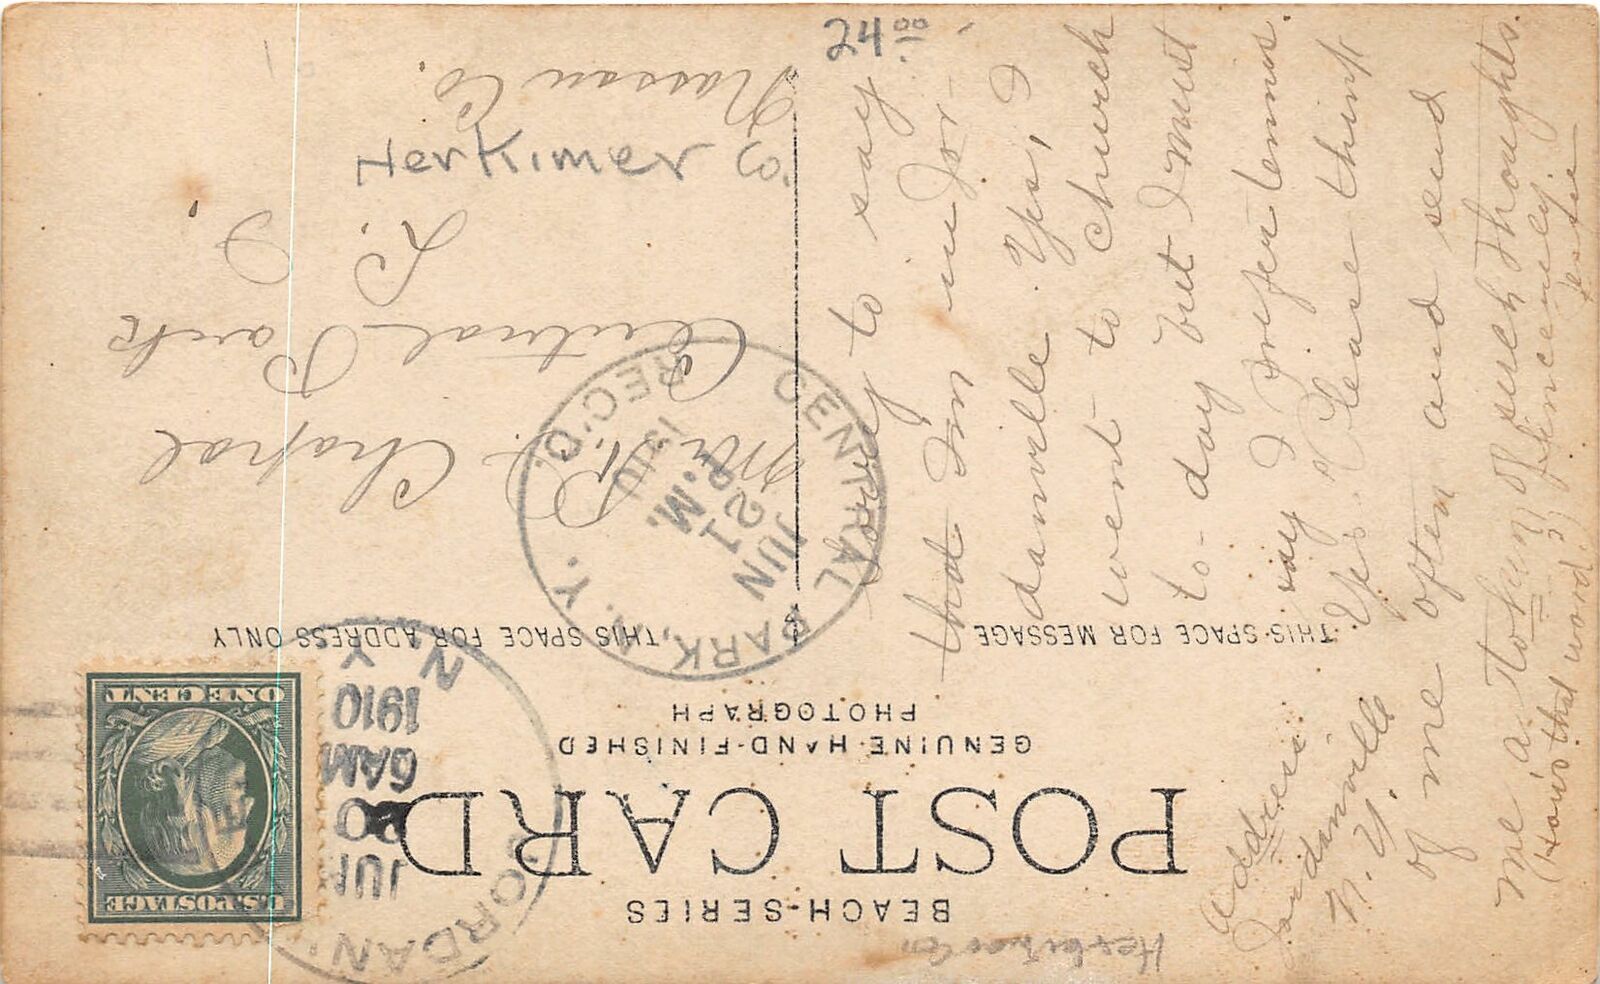 BEACH-SERIES
POST CARD
GENUINE·HAND-FINISHED
PHOTOGRAPH
THIS·SPACE FOR MESSAGE
THIS SPACE FOR ADDRESS ONLY
U.S. POSTAGE
ONE CENT
JORDAN
JUN
20
6AM
1910
N
Y
CENTRAL PARK, N.Y.
JUN
21
2 P.M.
1910
REC'D.
24.00
Only to say
that I'm in Jor-
danville. Yes, I
went to Church
to-day but I must
say I prefer tennis.
Yes. Please think
of me often and send
me, a token of such thoughts.
(Hows that word?) Sincerely.
Address
Jordanville
N. Y.
Chapal
Central Park
L. I.
Nassau Co.
Herkimer Co.
Herkimer Co